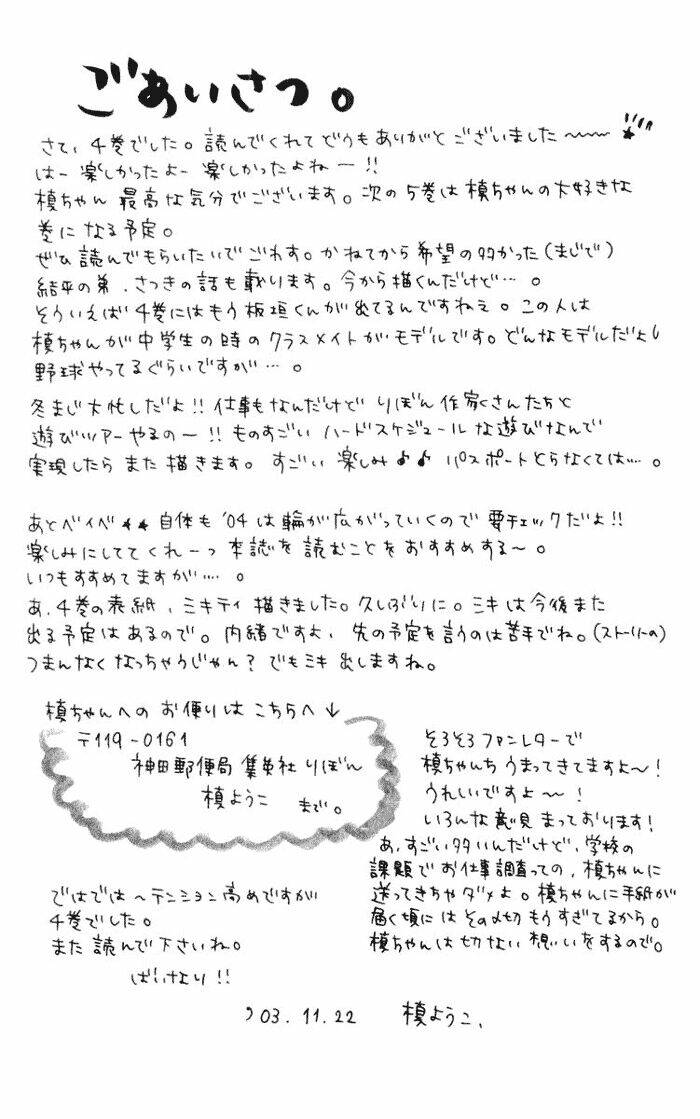 ごあいさつ。
さて、4巻でした。読んでくれてどうもありがとございました〜〜
はー楽しかったよー楽しかったよねー!!
槙ちゃん 最高な気分でございます。次の5巻は槙ちゃんの大好きな
巻になる予定。
ぜひ読んでもらいたいでごわす。かねてから希望の多かった(まじで)
結平の弟、さつきの話も載ります。今から描くんだけど…。
そういえば4巻にはもう板垣くんが出てるんですねえ。この人は
槙ちゃんが中学生の時のクラスメイトがモデルです。どんなモデルだよ!
野球やってるぐらいですが…。
冬まじ大忙しだよ!!仕事もなんだけど りぼん作家さんたちと
遊びツアーやるの〜!!ものすごい ハードスケジュールな遊びなんで
実現したら また描きます。すごい 楽しみ♪♪ パスポートとらなくては…。
あとベイベ★★自体も '04は輪が広がっていくので 要チェックだよ!!
楽しみにしててくれーっ 本誌を読むことをおすすめする〜。
いつもすすめてますが…。
あ、4巻の表紙、ミキティ描きました。久しぶりに。ミキは今後また
出る予定はあるので。内緒ですよ、先の予定を言うのは苦手でね。(ストーリーの)
つまんなくなっちゃうじゃん? でもミキ出しますね。
槙ちゃんへの お便りは こちらへ↓
〒119-0161
神田郵便局 集英社 りぼん
槙ようこ まで。
そろそろファンレターで
槙ちゃんち うまってきてますよ〜!
うれしいですよ〜!
いろんな意見 まっております!
あ、すごい多いんだけど、学校の
課題で お仕事調査っての、槙ちゃんに
送ってきちゃダメよ。槙ちゃんに手紙が
届く頃には その〆切もうすぎてるから。
槙ちゃんは切ない 想いをするので。
ではでは〜テンション高めですが
4巻でした。
また読んで下さいね。
ばいなり!!
'03.11.22 槙ようこ、